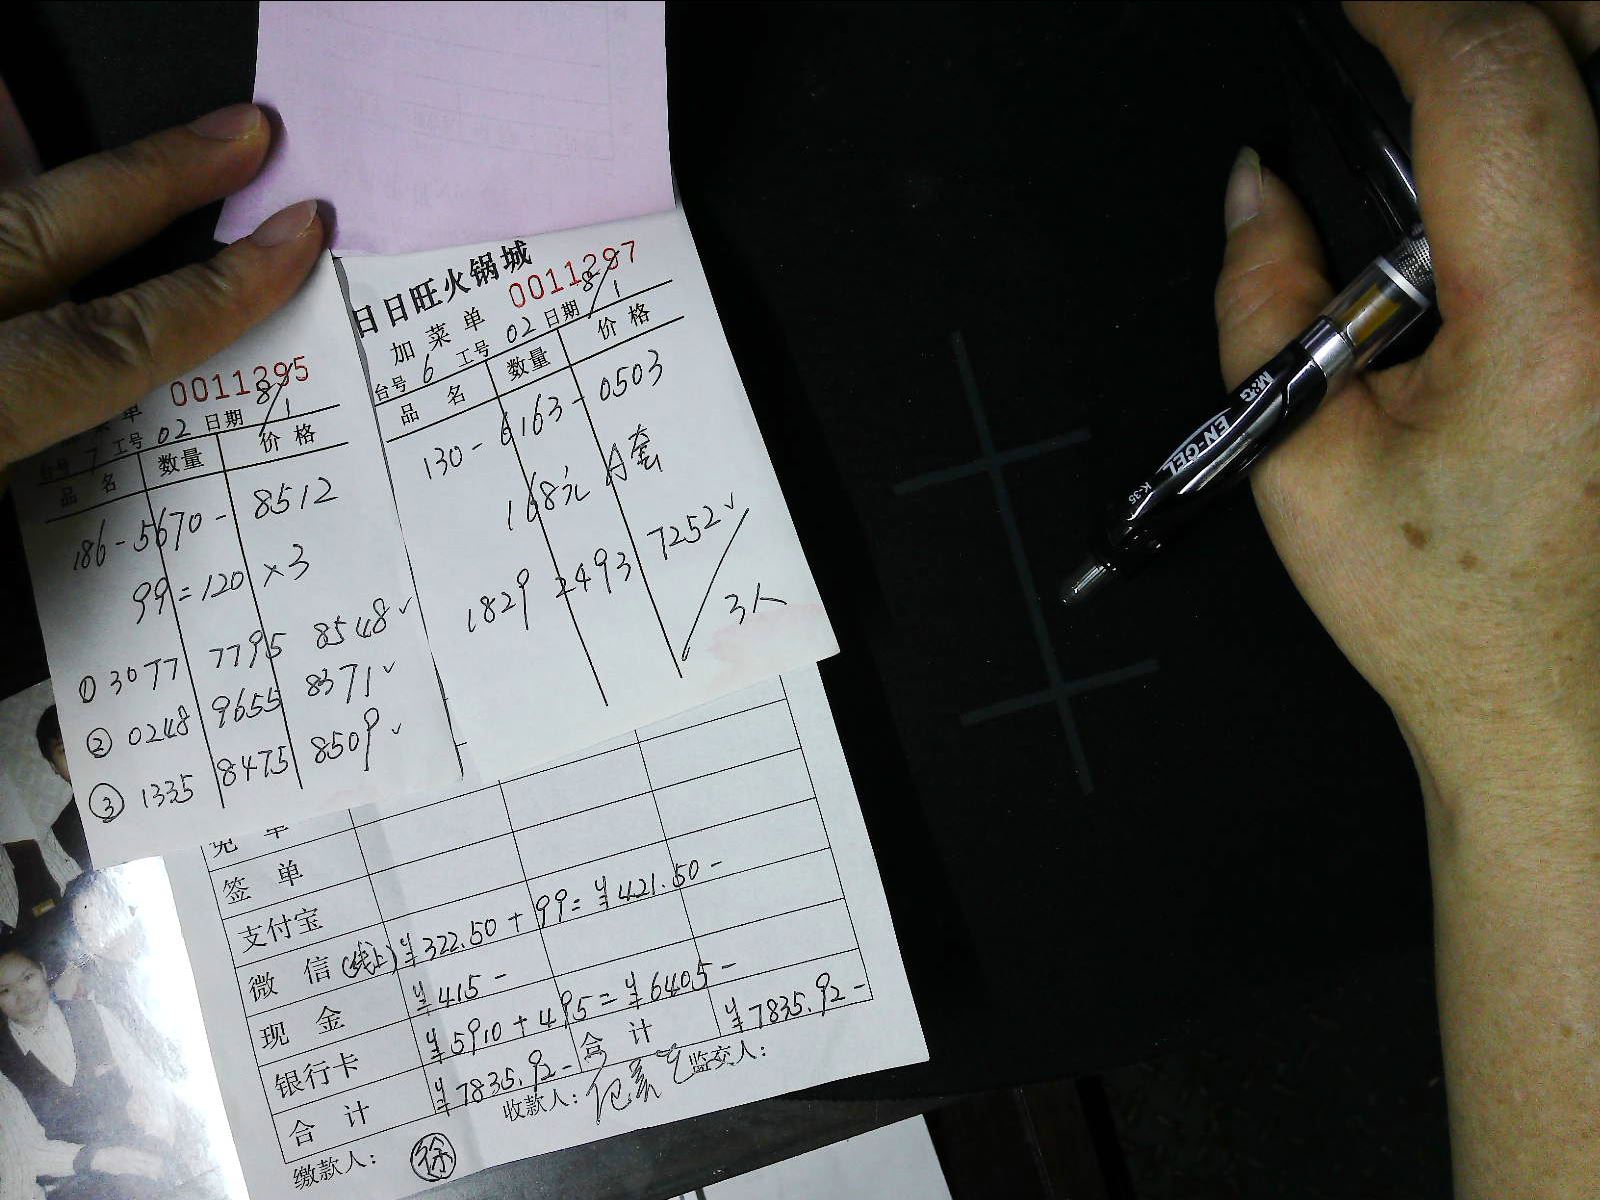 日日旺火锅城
加菜单 0011297
台号 6 工号 02 日期 8/1
品名 数量 价格
130-6163-0503
168元 A套
1829 2493 7252✓
3人
单 0011295
台号 7 工号 02 日期 8/1
品名 数量 价格
186-5670-8512
99=120×3
① 3077 7795 8548✓
② 0248 9655 8371✓
③ 1335 8475 8509✓
免单
签单
支付宝
微信(线上) ¥322.50+99=¥421.50-
现金 ¥415-
银行卡 ¥5910+495=¥6405-
合计 ¥7835.92- 合计 ¥7835.92-
缴款人: 徐 收款人: 监交人:
M&G EN-GEL K-35